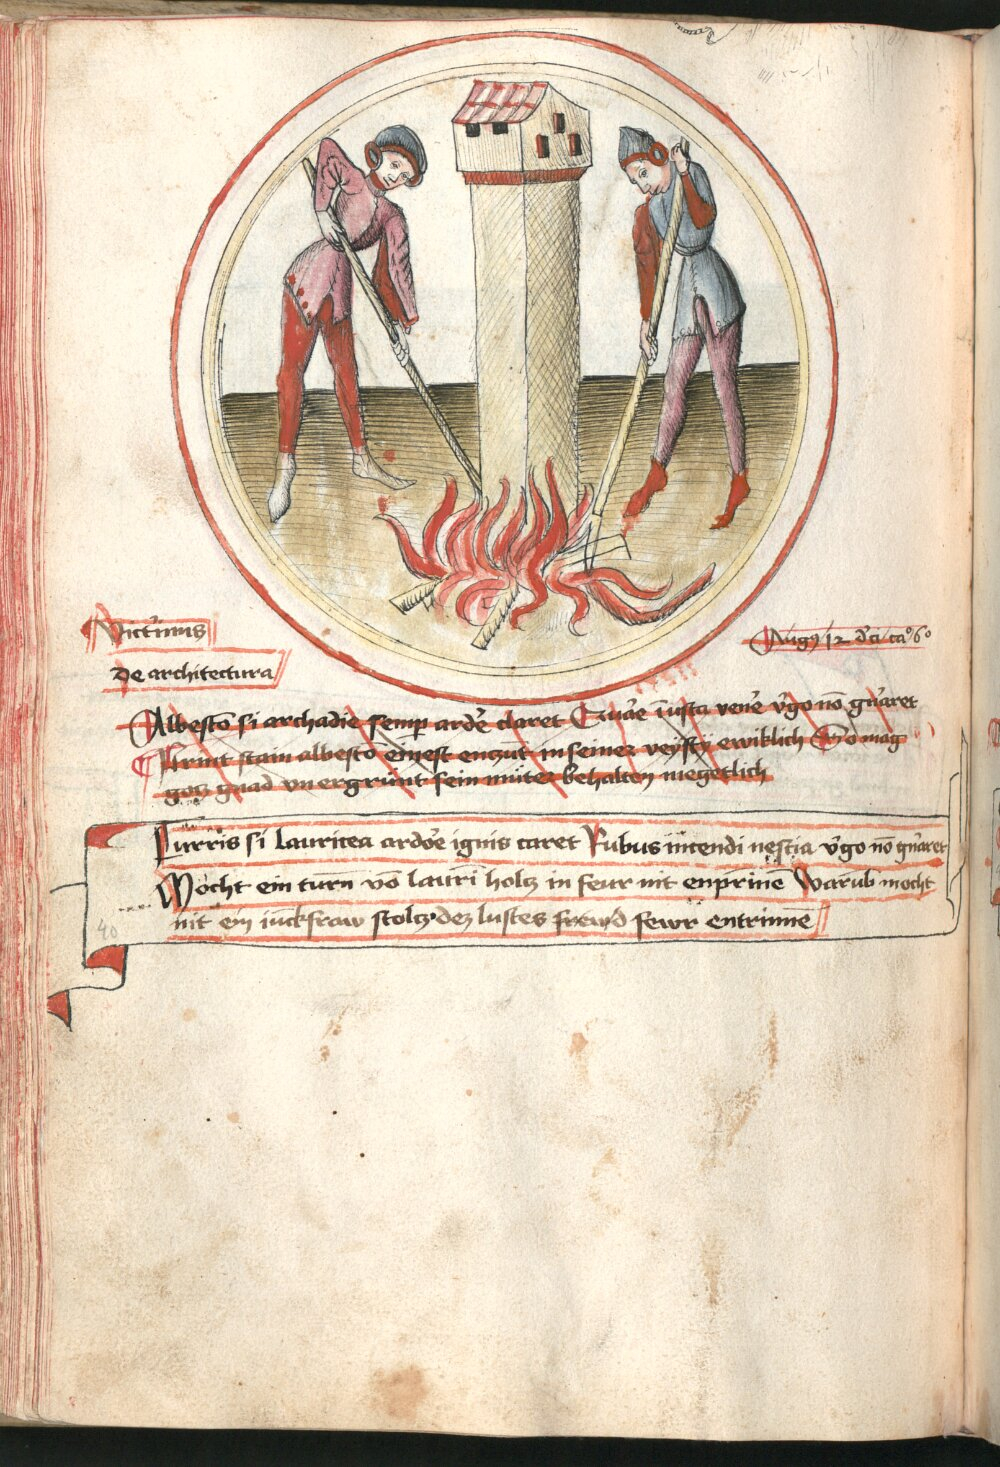 Victrinius
De architectura
Aug9 12 d' ci ca° 6°
Albestō si archadie semp ardē claret Cur ae iusta venē v'go nō gn'aret
Prinnt stain albestō einest enzüt in seiner veysty ewiklich So mag
gotz gnad vnergrünt sein müter behalten megetlich
Turris si lauricea ardōe ignis caret Rubus incendi nescia v'go nō gn'aret
Mocht ein turn vō lauri holtz in feur nit enprinnē Warūb mocht
nit ein iunckfraw stoltz dez lustes frewd fewr entrinnē
40